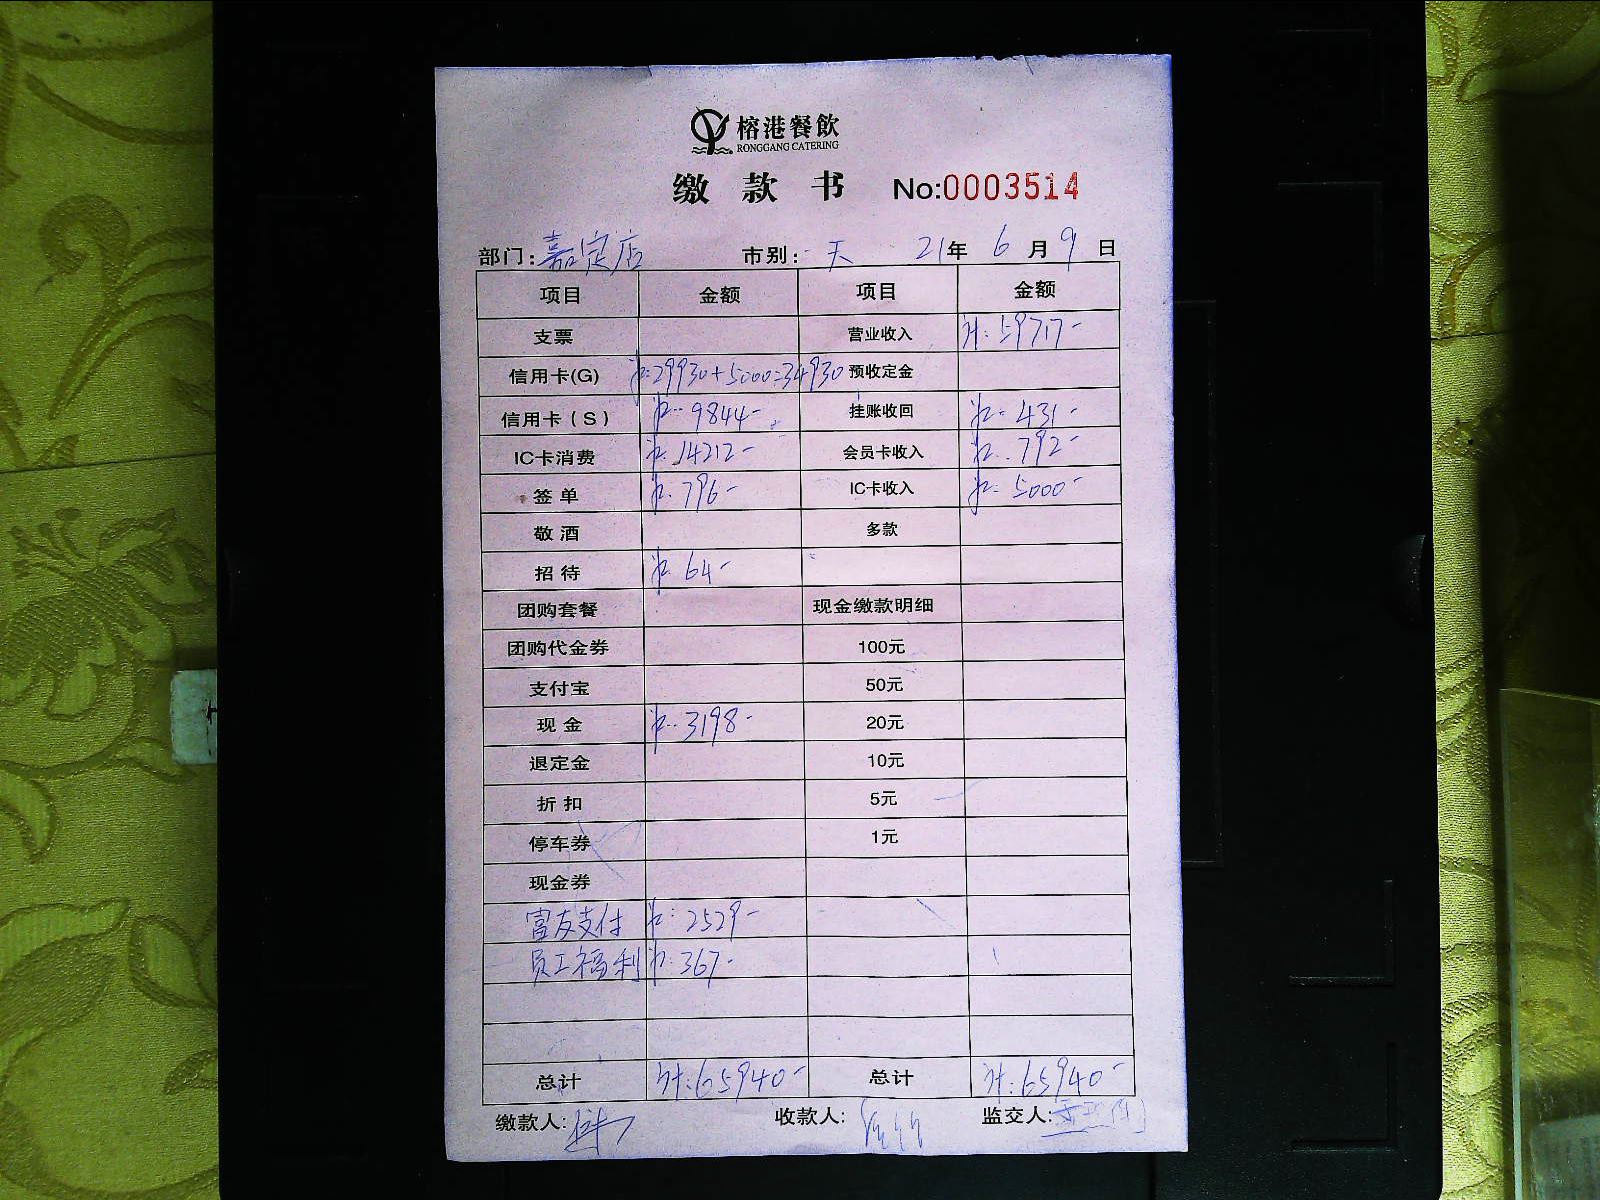 榕港餐飲
RONGGANG CATERING
缴 款 书 No:0003514
部门:嘉定店 市别: 天 21年 6 月 9 日
项目 金额 项目 金额
支票 营业收入 计:59717-
信用卡(G) 29930+5000=34930 预收定金
信用卡(S) 9844- 挂账收回 431-
IC卡消费 14212- 会员卡收入 792-
签 单 796- IC卡收入 5000-
敬 酒 多款
招 待 64-
团购套餐 现金缴款明细
团购代金券 100元
支付宝 50元
现 金 3198- 20元
退定金 10元
折 扣 5元
停车券 1元
现金券
富友支付 2529-
员工福利 367-
总计 计:65940- 总计 计:65940-
缴款人: 收款人: 监交人: